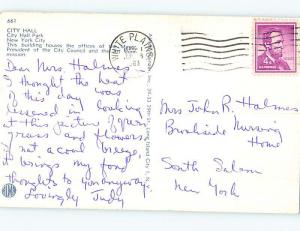 661
CITY HALL
City Hall Park
New York City
This building houses the offices of the
President of the City Council and the
mission.
Dear Mrs. Halmes
I thought the heat
was of this day
lessened in looking
at this picture of
grass and flowers
if not a cool breeze.
It brings my fond
thoughts to you anyway.
Lovingly Judy
Long Island City 1, N.Y.
WHITE PLAINS
4¢
Mrs John R. Halmes
Brookside Nursing
Home
South Salem
New York